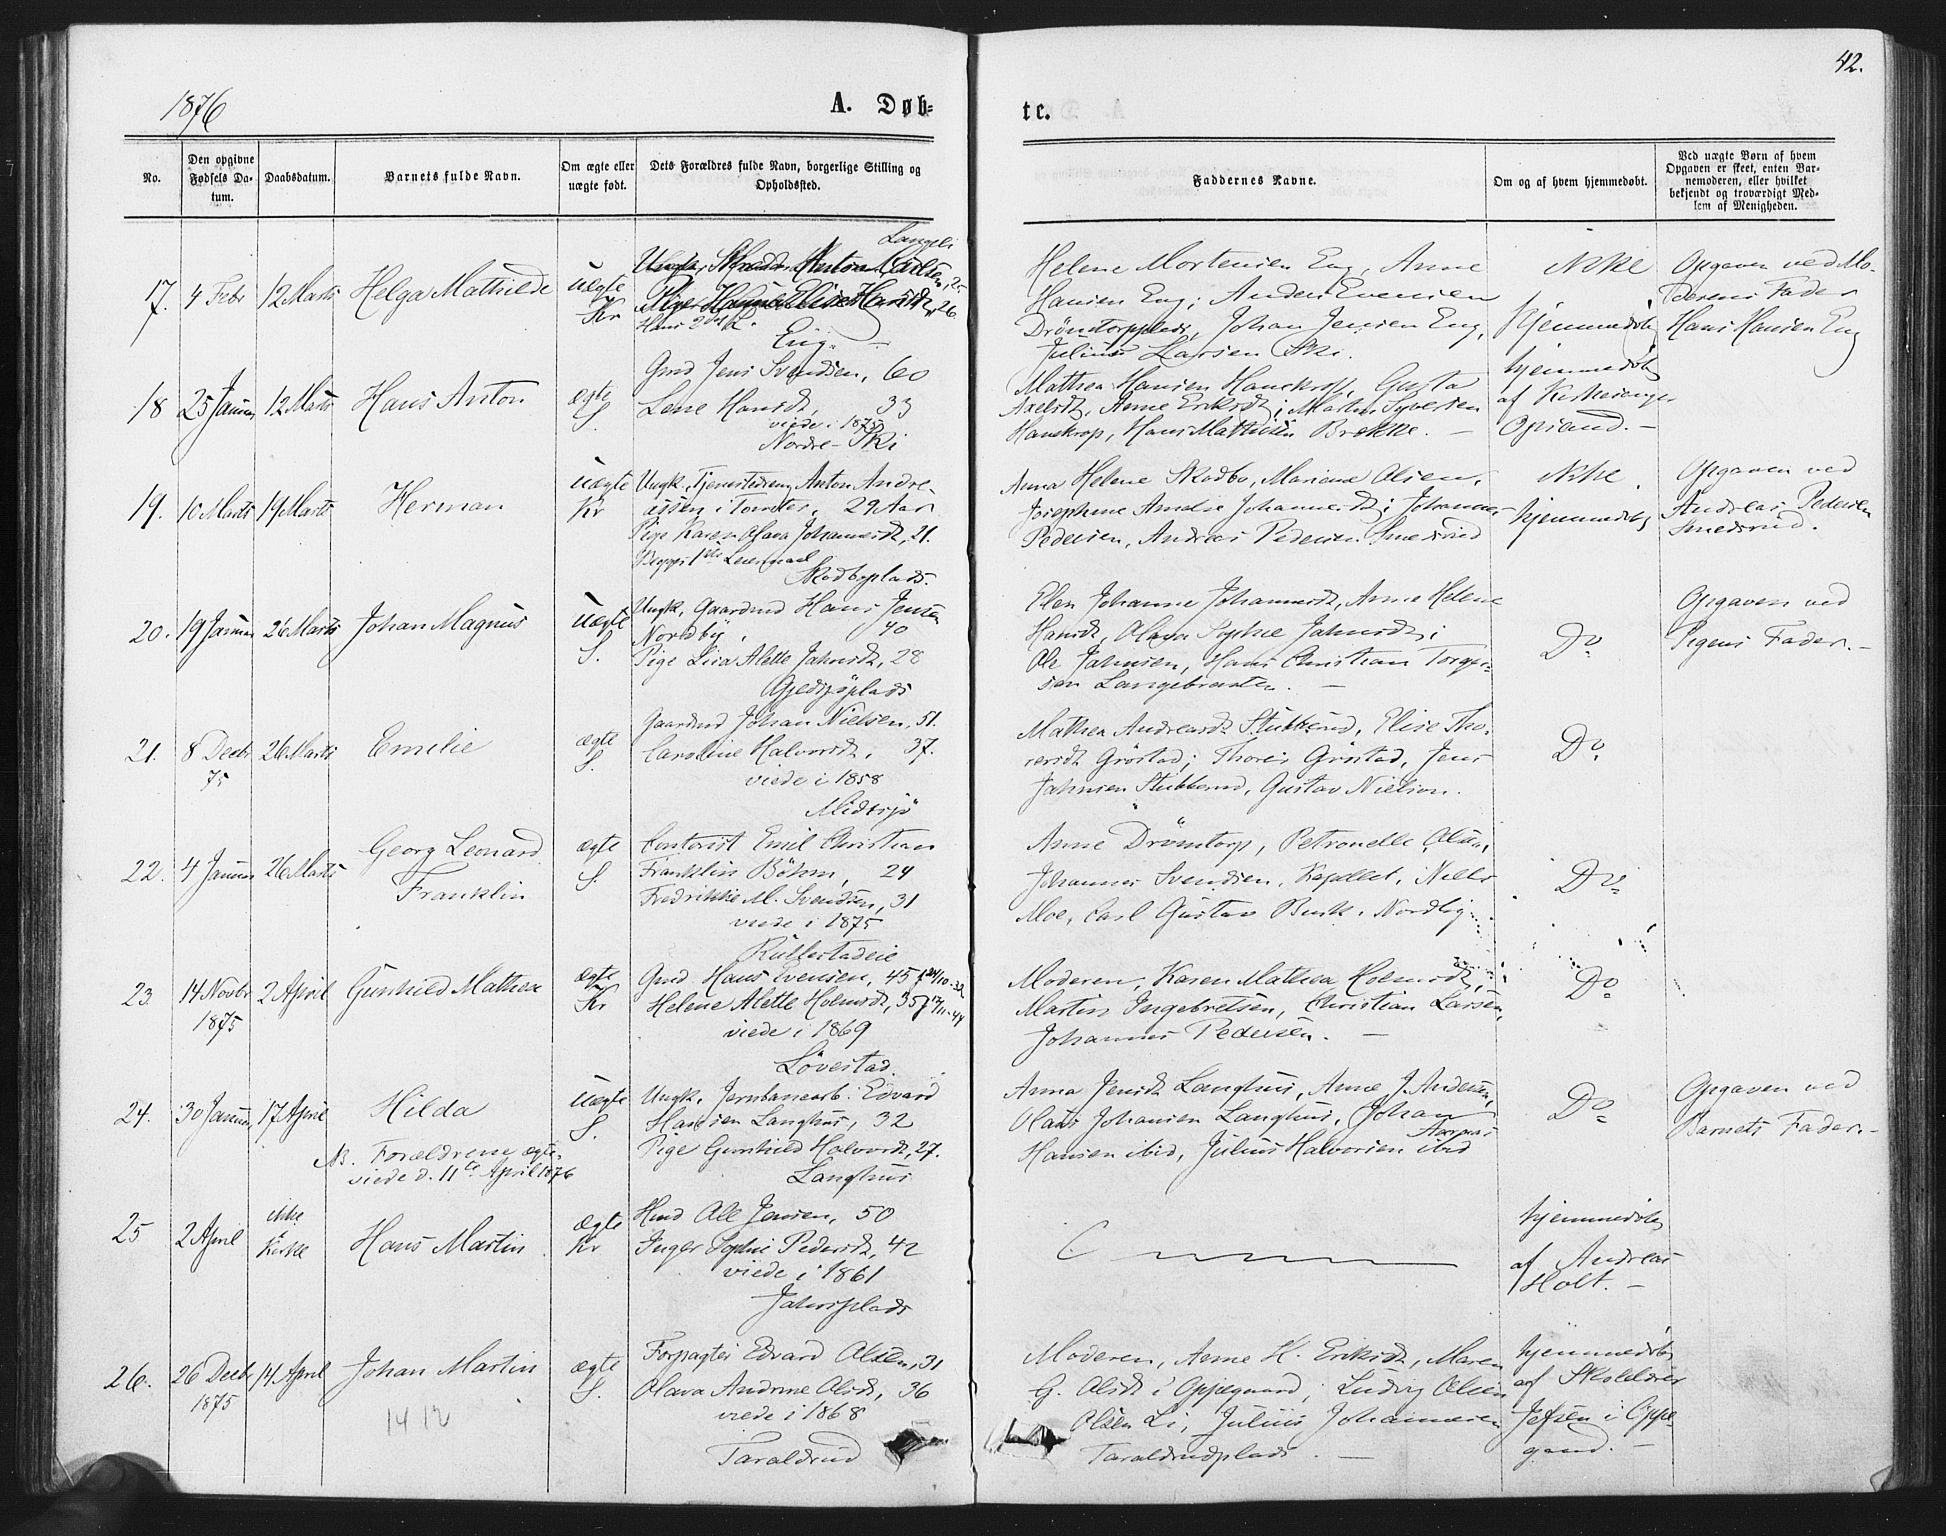 42.
1876
A. Døb-
te.
No.
Den opgivne Fødsels Da-tum.
Daabsdatum.
Barnets fulde Navn.
Om ægte eller uægte født.
Dets Forældres fulde Navn, borgerlige Stilling og Opholdssted.
Faddernes Navne.
Om og af hvem hjemmedøbt.
Ved uægte Børn af hvem Opgaven er skeet, enten Bar-nemoderen, eller hvilket bekjendt og troværdigt Med-lem af Menigheden.
17. 4 Febr 12 Marts Helga Mathilde uægte Kr
Langeli
Ungk. Anton Karlsen, 25
Pige Hansdt, 26
Hans 2det L.
Eng. -
Helene Mortensen Eng, Anne
Hansen Eng; Anders Evensen
Drömtorpplads, Johan Jensen Eng,
Julius Larsen Ski.
ikke
hjemmedøbt
Opgaven ved Mo-
derens Fader
Hans Hansen Eng
18 25 Januar 12 Marts Hans Anton ægte S.
Gmd Jens Svendsen, 60
Lene Hansdt, 33
viede i 1875
Nordre Ski
Mathea Hansen Hauckrop, Gusta
Axelsdt, Anne Eriksdt; Martin Syversen
Hauckrop, Hans Mathisen Brekke. -
hjemmedøbt
af Kirkesanger
Opsand. -
19. 10 Marts 19 Marts Herman uægte Kr
Ungk. Tjenestedreng Anton Andre-
assen i Tomter, 29 Aar
Pige Karen Olava Johannesdt, 21.
Begges 1ste Leiermaal
Skodboplads.
Anna Helene Skodbo, Mariane Olsen,
Josephine Amalie Johannesdt; Johannes
Pedersen, Andreas Pedersen Smedsrud
ikke
hjemmedøbt
Opgaven ved
Andreas Pedersen
Smedsrud.
20. 19 Januar 26 Marts Johan Magnus uægte S.
Ungk. Gaardmd Hans Jensen
Nordby, 40
Pige Lisa Alette Jahnsdt, 28
Gjedsjöplads
Elen Johanne Johannesdt, Anne Helene
Hansdt, Olava Sophie Jahnsdt;
Ole Jahnsen, Hans Christian Torger-
sen Langebraaten. -
Do
Opgaven ved
Pigens Fader. -
21. 8 Decbr 75 26 Marts Emilie ægte S.
Gaardmd Johan Nielsen, 51.
Caroline Halvorsdt, 37.
viede i 1858
Midtsjö
Mathea Andreasdt Stubberud, Elise Tho-
resdt Gröstad; Thores Gröstad, Jens
Jahnsen Stubberud, Gustav Nielsen.
Do
22. 4 Januar 26 Marts Georg Leonard
Franklin ægte S.
Contorist Emil Christian
Franklin Böhm, 24
Fredrikke M. Svendsen, 31
viede i 1875
Rullestadeie
Anne Drömtorp, Petronelle Olsen,
Johannes Svendsen, Kapellet, Niels
Moe, Carl Gustav Busk, Nordby.
Do
23 14 Novbr 1875 2 April Gunhild Mathea ægte Kr
Gmd Hans Evensen, 45
Helene Alette Holmsdt, 35
viede i 1869
Lövestad
Moderen, Karen Mathea Holmsdt,
Martin Ingebretsen, Christian Larsen,
Johannes Pedersen. -
Do
24. 30 Januar 17 April Hilda uægte S.
NB. Forældrene ægte-
viede d. 11te April 1876
Ungk. Jernbanearb. Edvard
Hansen Langhus, 32
Pige Gunhild Halvorsdt, 27.
Langhus
Anna Jensdt Langhus, Anne J. Andersen,
Olaus Johansen Langhus, Johan
Hansen ibid, Julius Halvorsen ibid
Do
Opgaven ved
Barnets Fader. -
25 2 April ikke i Kirke Hans Martin ægte Kr
Hmd Ole Jensen, 50
Inger Sophie Pedersdt, 42
viede i 1861
Jahrsplads
hjemmedøbt
af Andreas
Holt. -
26. 26 Decbr 1875 14 April Johan Martin ægte S.
1412
Forpagter Edvard Olsen, 31
Olava Andrine Olsdt, 36
viede i 1868
Taraldrud
Moderen, Anne K. Eriksdt, Maren
G. Olsdt i Oppegaard; Ludvig Olsen
Olsen Li, Julius Johannesen
Taraldrudplads. -
hjemmedøbt
af Skolelærer
Jepsen i Oppe-
gaard. -